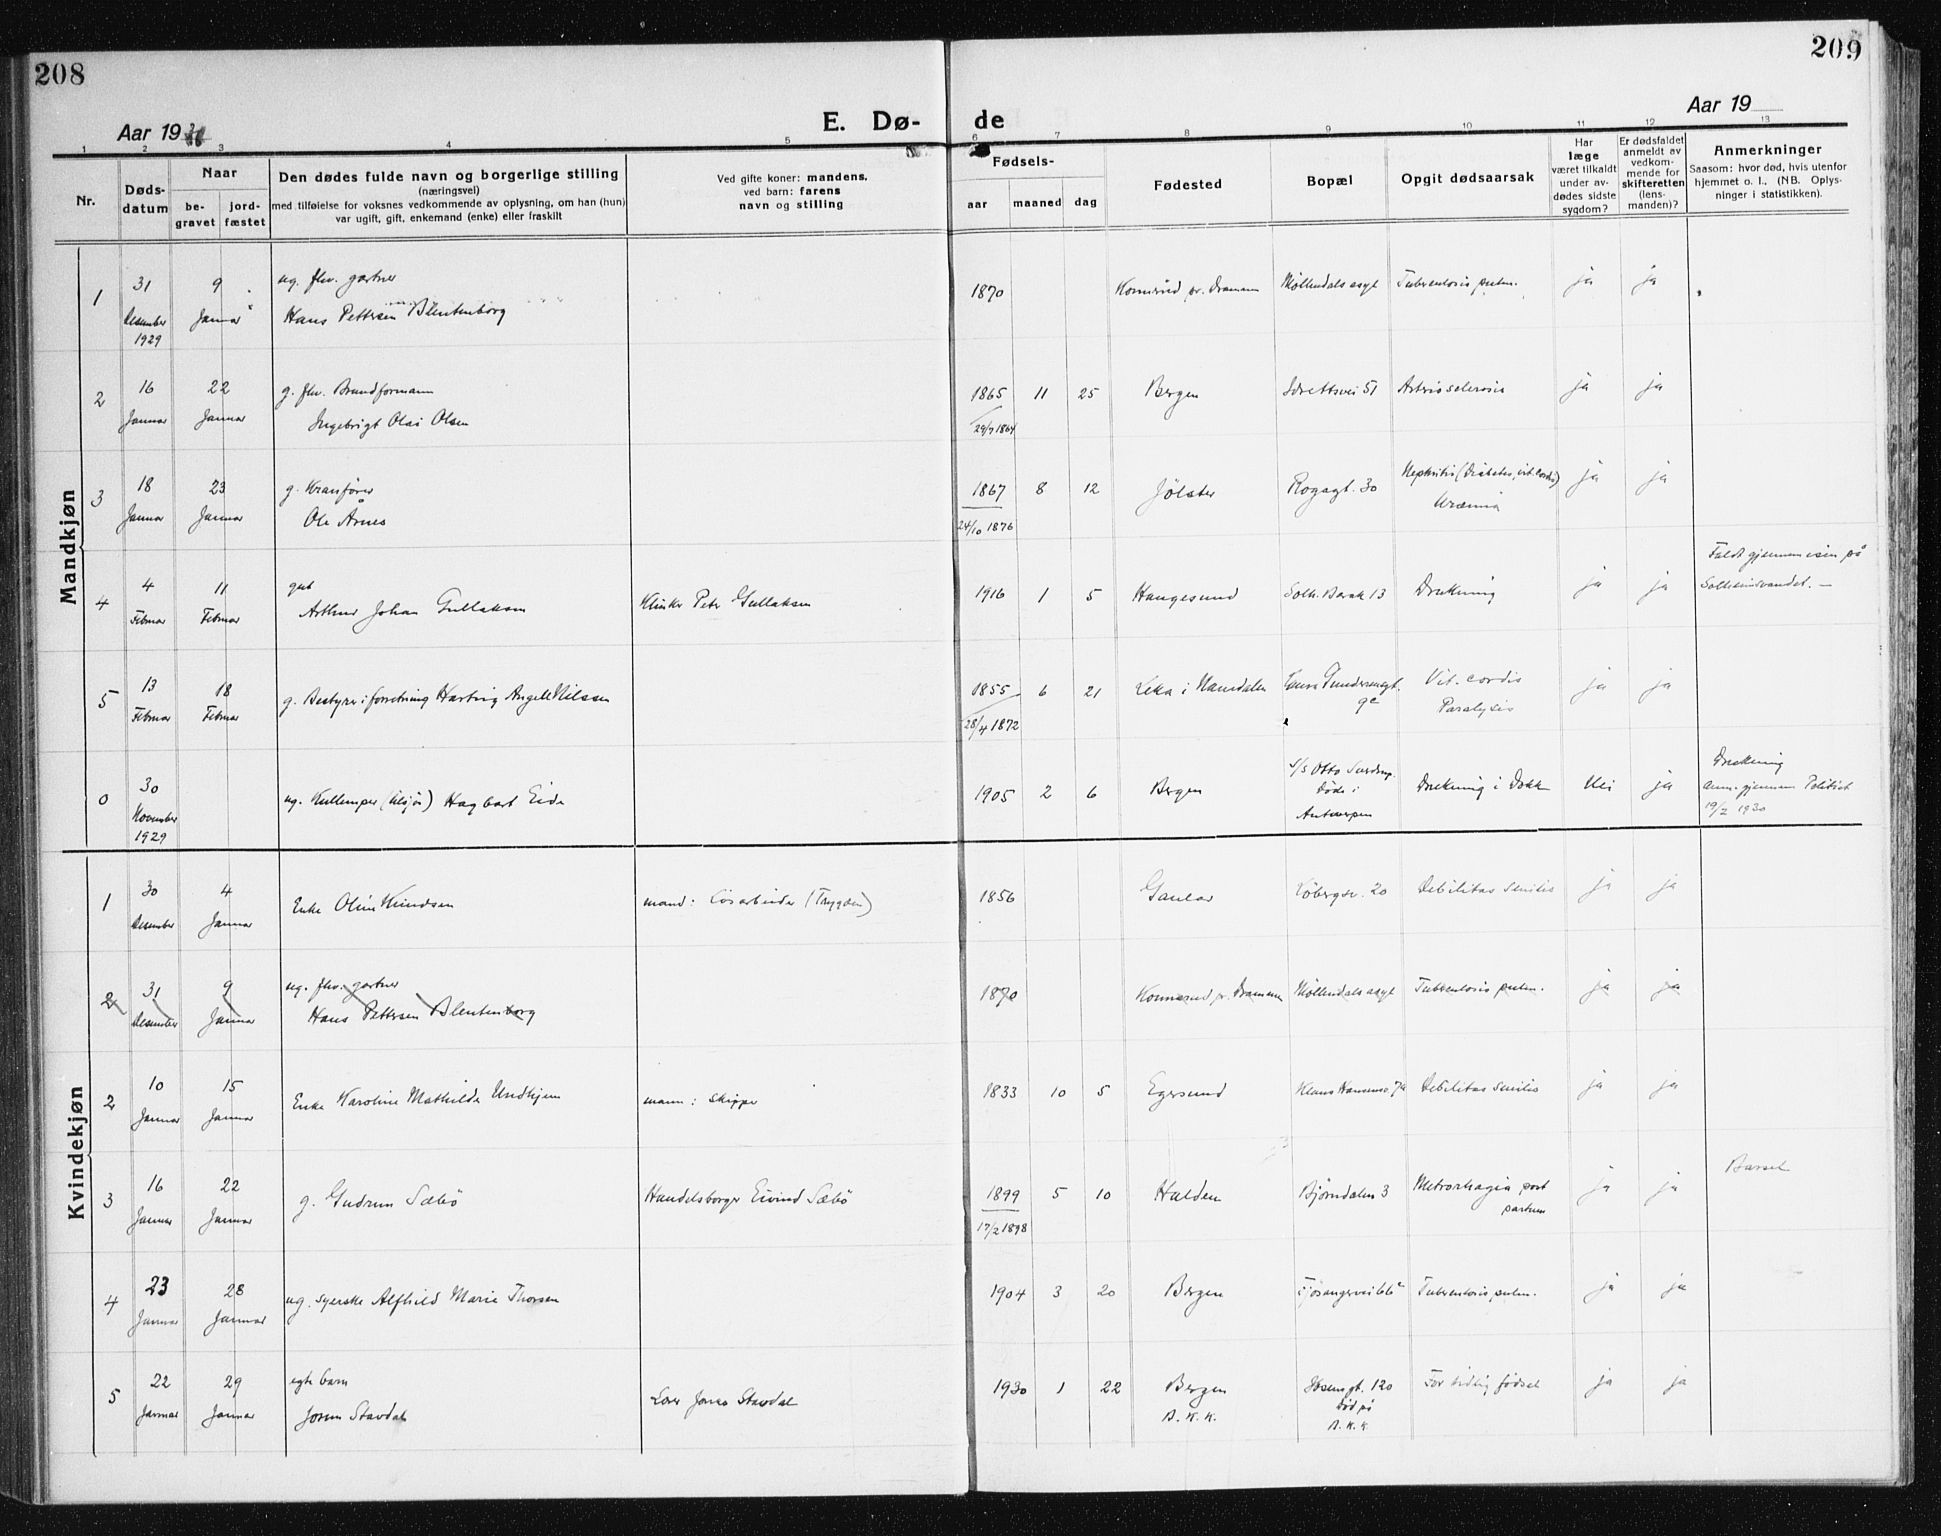 208
209
Aar 1930
E. Dø-
de
Aar 19
1 2 3 4 5 6 7 8 9 10 11 12 13
Nr.
Døds-
datum
Naar
be-
gravet
jord-
fæstet
Den dødes fulde navn og borgerlige stilling
(næringsvei)
med tilføielse for voksnes vedkommende av oplysning, om han (hun)
var ugift, gift, enkemand (enke) eller fraskilt
Ved gifte koner: mandens,
ved barn: farens
navn og stilling
Fødsels-
aar maaned dag
Fødested
Bopæl
Opgit dødsaarsak
Har
læge
været tilkaldt
under av-
dødes sidste
sygdom?
Er dødsfaldet
anmeldt av
vedkom-
mende for
skifteretten
(lens-
manden)?
Anmerkninger
Saasom: hvor død, hvis utenfor
hjemmet o. l., (NB. Oplys-
ninger i statistikken).
Mandkjøn
1 31 Desember 1929 9 Januar
ug. fhv. gartner
Hans Pettersen Blentenborg
1870 Konnerud pr. Drammen Møllendals asyl Tuberculosis pulm. ja ja
2 16 Januar 22 Januar
g. fhv. Brandformann
Ingebrigt Olai Olsen
1865 11 25 Bergen Idrettsvei 51 Arteriosclerosis ja ja
29/7 1864
3 18 Januar 23 Januar
g. Kranfører
Ole Årnes
1867 8 12 Jølster Rogagt. 30 Nephritis (Diabetes, vit. cordis) ja ja
Uræmia
24/10 1876
4 4 Februar 11 Februar
gut
Arthur Johan Gullaksen
Klinker Peter Gullaksen
1916 1 5 Haugesund Solh. Barak 13 Drukning ja ja
Faldt gjennem isen på
Solheimsvandet. —
5 13 Februar 18 Februar
g. Bestyrer i forretning Hartvig Angell Nilssen
1855 6 21 Leka i Namdalen Laura Gundersensgt. 9c Vit. cordis ja ja
Paralysis
28/4 1872
0 30 November 1929
ug. Kullemper (tilsjøs) Hagbart Eide
1905 2 6 Bergen S/S Otto Sverdrup. Drukning i Dokk Nei ja
Døde i
Antwerpen
Drukning
Anm. gjennem Politiet
19/2 1930
Kvindekjøn
1 30 Desember 4 Januar
Enke Oline Knudsen
mand: Løsarbeider (Trygden)
1856 Gaular Løbergsv. 20 Debilitas senilis ja ja
2 31 Desember 9 Januar
ug. fhv. gartner
Hans Pettersen Blentenborg
1870 Konnerud pr. Drammen Møllendals asyl Tuberculosis pulm. ja ja
2 10 Januar 15 Januar
Enke Karoline Mathilde Undhjem
mann: skipper
1833 10 5 Egersund Klaus Hansensv. 7a Debilitas senilis ja ja
3 16 Januar 22 Januar
g. Gudrun Sæbø
Handelsborger Eivind Sæbø
1899 5 10 Halden Bjørndalen 3 Metrorrhagia post ja ja
partum
17/2 1898
Barsel
4 23 Januar 28 Januar
ug. syerske Alfhild Marie Thorsen
1904 3 20 Bergen Fjøsangervei 66a Tuberculosis pulm. ja ja
5 22 Januar 29 Januar
egte barn
Jorun Stavdal
Løser Jonas Stavdal
1930 1 22 Bergen Ibsensgt. 120 For tidlig fødsel ja ja
B. K. K.
Død på
B. K. K.